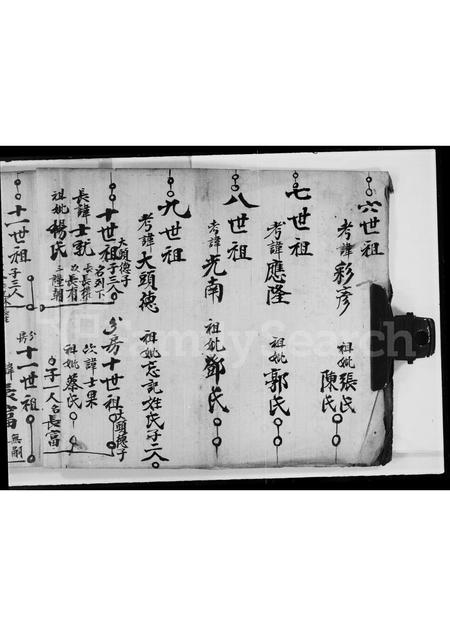 六世祖
考諱彩彥
祖妣張氏
陳氏
七世祖
考諱應隆
祖妣郭氏
八世祖
考諱光南
祖妣鄧氏
九世祖
考諱大頭德
祖妣忘記姓氏子二人
大頭德子
十世祖子三人
名列下
長諱士
祖妣楊氏
分房十世祖
大頭德子
次諱士果
祖妣蔡氏
子一人名長富
十一世祖子三人
分房十一世祖
長富
無嗣
FamilySearch